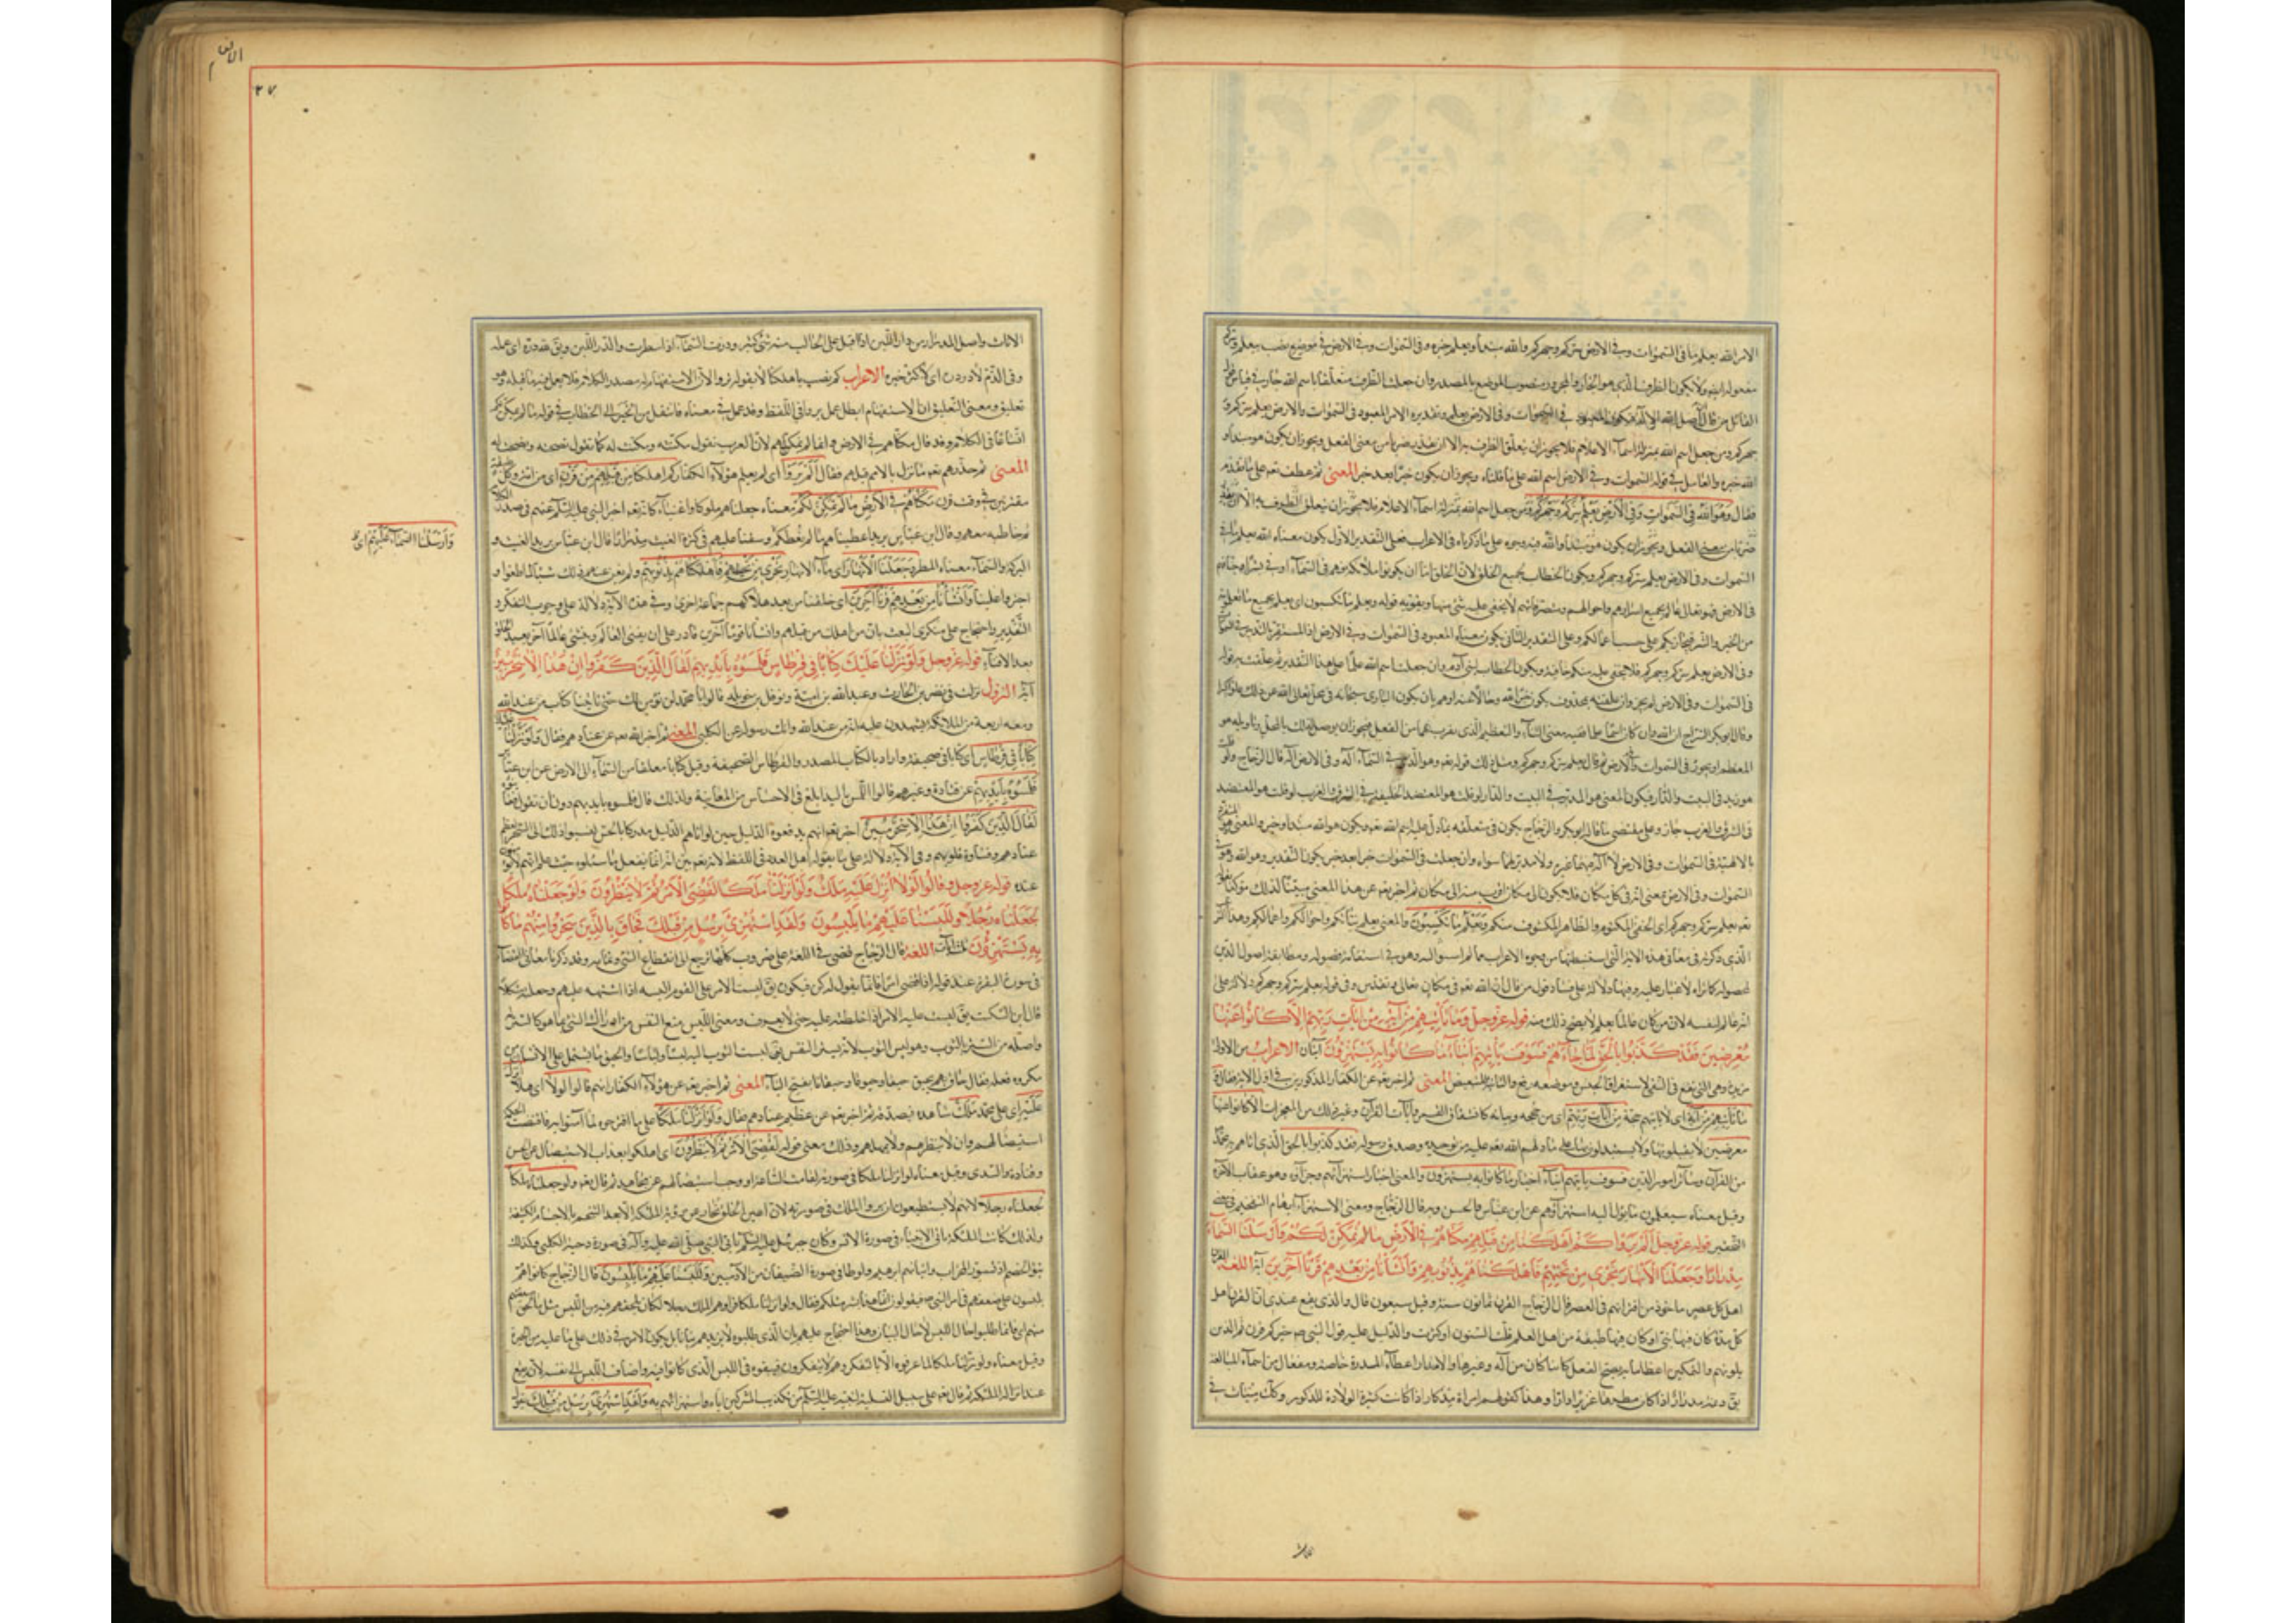 الامر الله يعلم ما فى السّموات وفى الارض سرّكم وجهركم والله مبتدأ ويعلم خبره وفى السّموات وفى الارض فى موضع نصب بيعلم
مفعوله ايضا ولا يكون الظرف الّذى هو الجار والمجرور منصوب الموضع بالمصدر وان جعلت الظّرف متعلّقا باسم الله جاز فى قياس
القائل من قال انّ اصل الله الاله فى السّموات وفى الارض يعلم وتقديره الامر المعبود فى السّموات والارض يعلم سرّكم و
جهركم ومن جعل اسم الله بمنزلة اسمآء الاعلام فلا يجوز ان يتعلّق الظرف به الا ان يقدر ضربا من معنى الفعل ويجوز ان يكون هو مبتدأ و
الله خبره والعامل فى قوله فى السّموات وفى الارض اسم الله على ما قلناه ويجوز ان يكون خبرا بعد خبر المعنى ثم عطف تعم على ما تقدم
فقال وَهُوَ اللهُ فِى السَّمٰوَاتِ وَفِى الْاَرْضِ يَعْلَمُ سِرَّكُمْ وَجَهْرَكُمْ ومن جعل اسم الله بمنزلة اسمآء الاعلام فلا يجوز ان يتعلق الظروف به الا ان
ضربا من معنى الفعل ويجوز ان يكون هو مبتدأ والله فيه وجوه على ما ذكرناه فى الاعراب فعلى التّقدير الاول يكون معناه الله يعلم فى
السّموات وفى الارض يعلم سرّكم وجهركم ويكون الخطاب لجميع الخلق لانّ الخلق امّا ان يكونوا ملآئكة فهم فى السّمآء او بشرا وجنا فهم
فى الارض فهو تعالى عالم بجميع اسرارهم واحوالهم ومتصرّفاتهم لا يخفى عليه شئ منها ويقوّيه قوله ويعلم ما تكسبون اى يعلم جميع ما تعملونه
من الخير والشر فيجازيكم على حسب اعمالكم وعلى التقدير الثّانى يكون معناه المعبود فى السّموات وفى الارض
وفى الارض يعلم سرّكم وجهركم فلا يخفى عليه منكم خافية ويكون الخطاب لبنى آدم وان جعلت اسم الله علما على هذا التّقدير ثم علقت به قوله
فى السّموات وفى الارض لم يجز وان علقته بمحذوف يكون خبر الله وحالا عنه اوهم بان يكون البارى سبحانه فى محلّ تعالى الله عن ذلك علوا كبيرا
وقال ابو بكر السّراج ان الله وان كان اسما علما ففيه معنى الثنآء والتّعظيم الّذى يقرب بهما من الفعل فيجوز ان يوصل لذلك بالمحل وتاويله هو
المعظم او نحوه فى السّموات والارض ثم قال يعلم سرّكم وجهركم ومثل ذلك قوله تعم وهو الّذى فى السّمآء آله وفى الارض آله قال الزجّاج ولو
هو زيد فى البيت والدّار فيكون المعنى هو المدبّر فى البيت والدّار ولو قلت هو المعتضد الخليفة فى الشرق والغرب او قلت هو المعتضد
فى الشرق والغرب جاز وعلى مقتضى ما قاله ابو بكر والزجّاج يكون فى متعلّقه بما دلّ عليه اسم الله تعم ويكون هو الله مبتدأ وخبر والمعنى
بالالهيّة فى السّموات وفى الارض لا آله فيهما غيره ولا مدبّر لهما سواه وان جعلت فى السّموات خبرا بعد خبر يكون التّقدير وهو الله
السّموات وفى الارض يعنى انّه فى كل مكان فلا يكون الى مكان اقرب منه الى مكان ثم اخبر تعم عن هذا المعنى مبيّنا لذلك مؤكدا
تعم يعلم سرّكم وجهركم اى الخفى المكتوم والظاهر المكشوف منكم وَيَعْلَمُ مَا تَكْسِبُونَ والمعنى يعلم نيّاتكم واحوالكم واعمالكم وهذا
الّذى ذكرته فى معانى هذه الآية الّتى استنبطتها من وجوه الاعراب ممّا لم اسبق اليه وهو فى استقامة فصوله ومطابقة اصول الدّين
لمحصوله كما تراه لا غبار عليه وفيها دلالة على فساد قول من قال انّ الله تعم فى مكان تعالى وتقدّس وفى قوله يعلم سرّكم وجهركم دلالة على
انه عالم لنفسه لان من كان عالما بعلم لا يصح ذلك منه قوله عزوجل وَمَا تَأْتِيهِمْ مِنْ آيَةٍ مِنْ آيَاتِ رَبِّهِمْ اِلَّا كَانُوا عَنْهَا
مُعْرِضِينَ فَقَدْ كَذَّبُوا بِالْحَقِّ لَمَّا جَاءَهُمْ فَسَوْفَ يَأْتِيهِمْ اَنْبَاءُ مَا كَانُوا بِهِ يَسْتَهْزِؤُنَ آيتان الاعراب من الاولى
مزيدة وهى الّتى تقع فى النّفى لاستغراق الجنس وموضعه رفع والثانية للتبعيض المعنى ثم اخبر تعم عن الكفار المذكورين فى اوّل الآية فقال
مَا تَأْتِيهِمْ مِنْ آيَةٍ اى لا ياتيهم حجّة مِنْ آيَاتِ رَبِّهِمْ اى من حججه وبيانه كانشقاق القمر وآيات القرآن وغير ذلك من المعجزات الا كانوا عنها
معرضين لا يقبلونها ولا يستدلون بها على ما دلهم الله تعم عليه من توحيده وصدق رسوله فقد كذبوا بالحق الّذى اتاهم به محمّد
من القرآن وسآئر امور الدّين فسوف ياتيهم انبآء اخبار ما كانوا به يستهزؤن والمعنى اخبار استهزآئهم وجزآؤه وهو عقاب الآخرة
وقيل معناه سيعلمون ما يؤل اليه استهزآؤهم عن ابن عبّاس والحسن وبه قال الزجّاج ومعنى الاستهزآء ايهام التفخيم فى معنى
التّحقير قوله عزوجل اَلَمْ يَرَوْا كَمْ اَهْلَكْنَا مِنْ قَبْلِهِمْ مِنْ قَرْنٍ مَكَّنَّاهُمْ فِى الْاَرْضِ مَا لَمْ نُمَكِّنْ لَكُمْ وَاَرْسَلْنَا السَّمَاءَ
مِدْرَارًا وَجَعَلْنَا الْاَنْهَارَ تَجْرِى مِنْ تَحْتِهِمْ فَاَهْلَكْنَاهُمْ بِذُنُوبِهِمْ وَاَنْشَأْنَا مِنْ بَعْدِهِمْ قَرْنًا آخَرِينَ آية اللغة القرن
اهل كل عصر ماخوذ من اقترانهم فى العصر قال الزجاج القرن ثمانون سنة وقيل سبعون قال والّذى يقع عندى انّ القرن اهل
كل مدّة كان فيها نبىّ او كان فيها طبقة من اهل العلم قلّت السّنون او كثرت والدّليل عليه قول النّبى ص خيركم قرنى ثم الّذين
يلونهم والتّمكين اعطآء ما به يصح الفعل كائنا ما كان من آلة وغيرها والاقدار اعطآء القدرة خاصّة ومفعال من اسمآء المبالغة
يق ديمة مدرار اذا كان مطرها غزيرا دارّا وهذا كقولهم امراة مذكار اذا كانت كثيرة الولادة للذكور وكذلك ميناث فى
الاناث واصل المدرار من درّ اللّبن اذا اقبل على الحالب منه شئ كثير ودرّت السّمآء اذا امطرت والدّر اللّبن ويق لله درّه اى عمله
وفى الذّم لا درّ درّه اى لا كثر خيره الاعراب كم نصب باهلكنا لا بقوله يروا لانّ الاستفهام له صدر الكلام فلا يعمل فيه ما قبله وهو
تعليق ومعنى التّعليق انّ الاستفهام ابطل عمل يروا فى اللّفظ وقد عمل فى معناه فانتقل من الخبر الى الخطاب فى قوله ما لم نمكّن لكم
اتّساعا فى الكلام وقد قال مكّنّاهم فى الارض وانما لم يقل لهم لانّ العرب تقول مكنته ومكنت له كما تقول نصحته ونصحت له
المعنى ثم حذّرهم تعم ما نزل بالامم قبلهم فقال اَلَمْ يَرَوْا اى الم يعلم هؤلآء الكفار كَمْ اَهْلَكْنَا مِنْ قَبْلِهِمْ مِنْ قَرْنٍ اى من امّة وكل طبقة
مقترنين فى وقت قرن مَكَّنَّاهُمْ فِى الْاَرْضِ مَا لَمْ نُمَكِّنْ لَكُمْ معناه جعلناهم ملوكا واغنيآء كانه تعم اخبر النّبى عليه السّلم عنهم فى صدر الكلام
ثم خاطبه معهم وقال ابن عبّاس يريد اعطيناهم ما لم نعطكم وَاَرْسَلْنَا السَّمَاءَ عَلَيْهِمْ اى مِدْرَارًا قال ابن عبّاس يريد الغيث و
البركة والسّمآء معناه المطر وَجَعَلْنَا الْاَنْهَارَ اى مآء الانهار تَجْرِى مِنْ تَحْتِهِمْ فَاَهْلَكْنَاهُمْ بِذُنُوبِهِمْ ولم يغن عنهم ذلك شيئا لما طغوا و
اجترؤا علينا وَاَنْشَأْنَا مِنْ بَعْدِهِمْ قَرْنًا آخَرِينَ اى خلقنا من بعد هلاكهم جماعة اخرى وفى هذه الآية دلالة على وجوب التفكّر و
التّدبّر واحتجاج على منكرى البعث بانّ من اهلك من قبلهم وانشأ قوما آخرين قادر على ان يفنى العالم وينشئ عالما آخر بعيد الخلق
بعد الافنآء قوله عزوجل وَلَوْ نَزَّلْنَا عَلَيْكَ كِتَابًا فِى قِرْطَاسٍ فَلَمَسُوهُ بِاَيْدِيهِمْ لَقَالَ الَّذِينَ كَفَرُوا اِنْ هٰذَا اِلَّا سِحْرٌ مُبِينٌ
آية النزول نزلت فى نضر بن الحارث وعبد الله بن امية ونوفل بن خويلد قالوا يا محمّد لن نؤمن لك حتى تاتينا بكتاب من عند الله
ومعه اربعة من الملآئكة يشهدون عليه انّه من عند الله وانّك رسوله عن الكلبى المعنى ثم اخبر الله تعم عن عنادهم فقال وَلَوْ نَزَّلْنَا عليك
كِتَابًا فِى قِرْطَاسٍ اى كتابة فى صحيفة واراد بالكتاب المصدر والقرطاس الصّحيفة وقيل كتابا معلّقا من السّمآء الى الارض عن ابن عبّاس
فَلَمَسُوهُ بِاَيْدِيهِمْ عن قتادة وغيرهم قالوا اللّمس باليد ابلغ فى الاحساس من المعاينة ولذلك قال فلمسوه بايديهم دون ان تقول
لَقَالَ الَّذِينَ كَفَرُوا اِنْ هٰذَا اِلَّا سِحْرٌ مُبِينٌ اخبر تعم انهم يدفعون الدّليل حتى لو اتاهم الدّليل مدركا بالحسّ لنسبوا ذلك الى السّحر لعظم
عنادهم وقساوة قلوبهم وفى الآية دلالة على ما يقوله اهل العدل فى اللطف لانه تعم بيّن انّه انما لم يفعل ما سئلوه حيث علم انّهم لا يؤمنون
عنده قوله عزوجل وَقَالُوا لَوْلَا اُنْزِلَ عَلَيْهِ مَلَكٌ وَلَوْ اَنْزَلْنَا مَلَكًا لَقُضِىَ الْاَمْرُ ثُمَّ لَا يُنْظَرُونَ وَلَوْ جَعَلْنَاهُ مَلَكًا
لَجَعَلْنَاهُ رَجُلًا وَلَلَبَسْنَا عَلَيْهِمْ مَا يَلْبِسُونَ وَلَقَدِ اسْتُهْزِئَ بِرُسُلٍ مِنْ قَبْلِكَ فَحَاقَ بِالَّذِينَ سَخِرُوا مِنْهُمْ مَا كَانُوا
بِهِ يَسْتَهْزِؤُنَ ثلث آيات اللغة قال الزجاج قضى فى اللغة على ضروب كلها ترجع الى انقطاع الشئ وتمامه وقد ذكرنا معانى القضآء
فى سورة البقرة عند قوله اذا قضى امرا فانّما يقول له كن فيكون يق لبست الامر على القوم البسه اذا اشتبه عليهم وجعلته مشكلا
قال ابن السّكّيت يق لبست عليه الامر اذا خلطته عليه حتى لا يعرف ومعنى اللّبس منع النّفس من ادراك الشئ بما هو كالستر له
واصله من السّتر بالثوب وهو لبس الثوب لانّه يستر النّفس يق لبست الثوب البسه لبسا ولباسا والحيق ما يشتمل على الانسان من
مكروه فعله فقال حاق بهم يحيق حيقا وحيوقا وحيقانا بفتح اليآء المعنى ثم اخبر تعم عن هؤلآء الكفار انهم قالوا لَوْلَا اى هلّا انزل
عَلَيْهِ اى على محمّد مَلَكٌ نشاهده فنصدقه ثم اخبر تعم عن عظيم عنادهم فقال وَلَوْ اَنْزَلْنَا مَلَكًا على ما اقترحوه لما آمنوا به فاقتضت الحكمة
استيصالهم وان لا ينظرهم ولا يمهلهم وذلك معنى قوله لَقُضِىَ الْاَمْرُ ثُمَّ لَا يُنْظَرُونَ اى اهلكوا بعذاب الاستيصال عن الحسن
وقتادة والسّدى وقيل معناه لو انزلنا ملكا فى صورته لقامت السّاعة او وجب استيصالهم عن مجاهد ثم قال تعم ولو جعلناه ملكا
لجعلناه رجلا لانهم لا يستطيعون ان يروا الملك فى صورته لانّ اعين الخلق تحار عن رؤية الملآئكة الا بعد التجسم بالاجسام الكثيفة
ولذلك كانت الملآئكة تاتى الانبيآء فى صورة الانس وكان جبرئيل عليه السّلم ياتى النّبى صلّى الله عليه وآله فى صورة دحية الكلبى وكذلك
نبؤ الخصم اذ تسوّروا المحراب واتيانهم ابرهيم ولوطا فى صورة الضّيفان من الآدميين وَلَلَبَسْنَا عَلَيْهِمْ مَا يَلْبِسُونَ قال الزجاج كانوا هم
يلبسون على ضعفتهم فى امر النّبى ص فيقولون انّما هذا بشر مثلكم فقال ولو انزلنا ملكا فراوهم الملك رجلا لكان يلحقهم فيه من اللّبس مثل ما لحق ضعفتهم
منهم اى فانما طلبوا حال اللبس لا حال البيان وهذا احتجاج عليهم بان الّذى طلبوه لا يزيدهم بيانا بل يكون الامر فى ذلك على ما هم عليه من الحيرة
وقيل معناه ولو انزلنا ملكا لما عرفوه الّا بالتّفكر وهم لا يتفكرون فيبقون فى اللّبس الّذى كانوا فيه واضاف اللّبس الى نفسه لانّه يقع
عند انزاله الملآئكة ثم قال تعم على سبيل التّسلية لنبيّه عليه السّلم من تكذيب المشركين اياه واستهزآئهم به وَلَقَدِ اسْتُهْزِئَ بِرُسُلٍ مِنْ قَبْلِكَ يقول
وَاَرْسَلْنَا السَّمَاءَ عَلَيْهِمْ اى
الانعام
٢٧